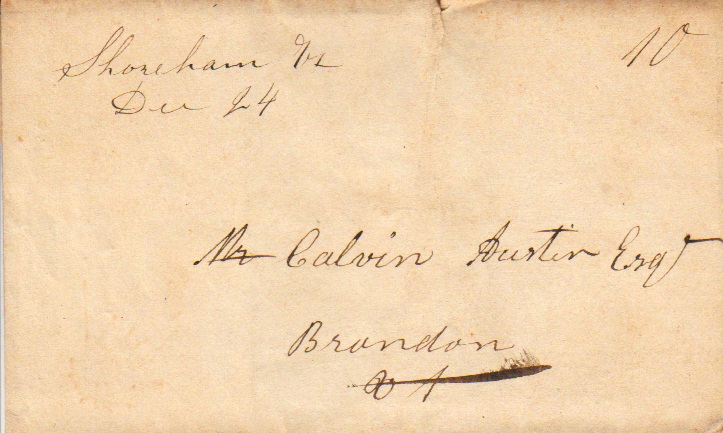 Shoreham Vt 10
Dec 24
Mr Calvin Austin Esqr
Brandon
Vt